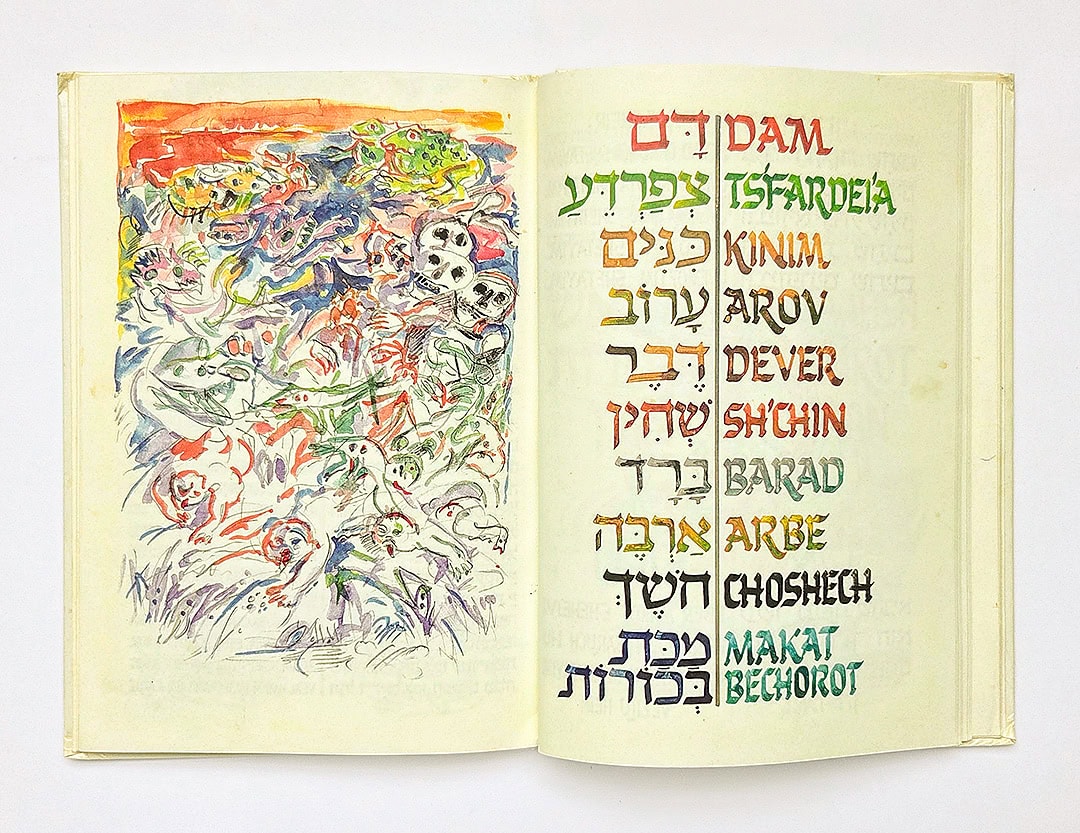 דָּם DAM
צְפַרְדֵּעַ TS'FARDEI'A
כִּנִּים KINIM
עָרוֹב AROV
דֶּבֶר DEVER
שְׁחִין SH'CHIN
בָּרָד BARAD
אַרְבֶּה ARBE
חשֶׁךְ CHOSHECH
מַכַּת MAKAT
בְּכוֹרוֹת BECHOROT